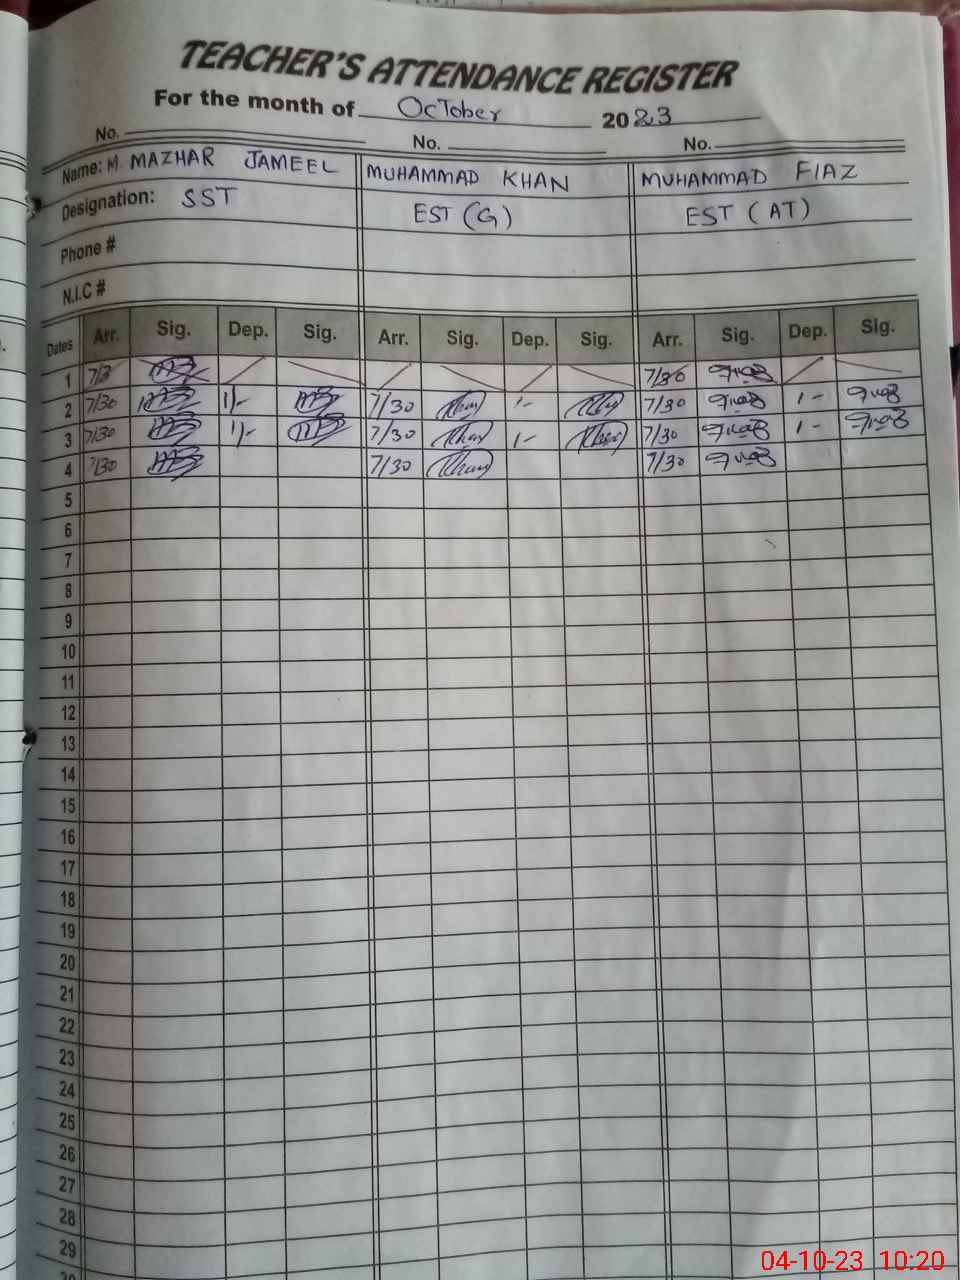 TEACHER'S ATTENDANCE REGISTER
For the month of October 2023
No. No. No.
Name: M. MAZHAR JAMEEL MUHAMMAD KHAN MUHAMMAD FIAZ
Designation: SST EST (G) EST (AT)
Phone #
N.I.C #
Dates Arr. Sig. Dep. Sig. Arr. Sig. Dep. Sig. Arr. Sig. Dep. Sig.
1 7/3 7/30
2 7/30 1/- 7/30 1- 7/30 1-
3 7/30 1/- 7/30 1- 7/30 1-
4 7/30 7/30 7/30
5
6
7
8
9
10
11
12
13
14
15
16
17
18
19
20
21
22
23
24
25
26
27
28
29
04-10-23 10:20